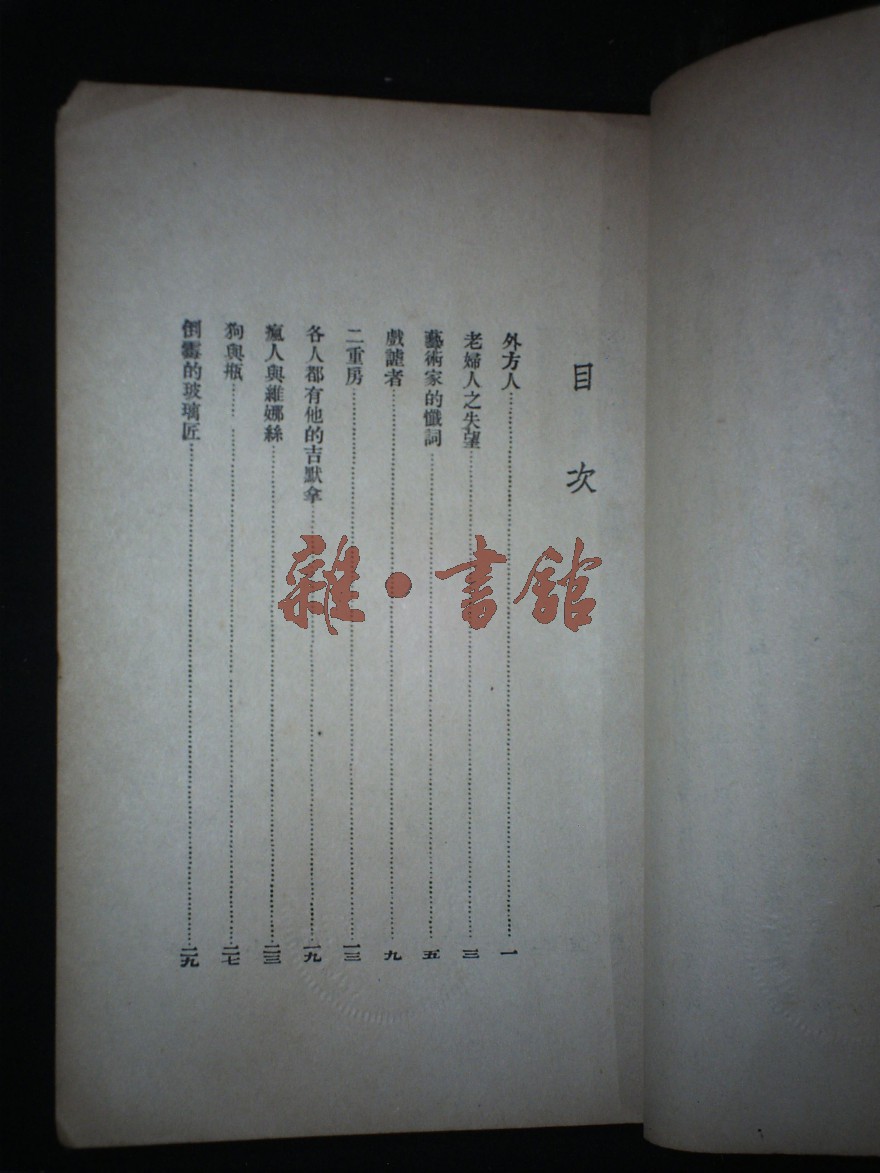 目次
外方人 一
老婦人之失望 三
藝術家的懺詞 五
戲謔者 九
二重房 一三
各人都有他的吉默拿 一九
瘋人與維娜絲 二三
狗與瓶 二七
倒霉的玻璃匠 二九
雜·書館